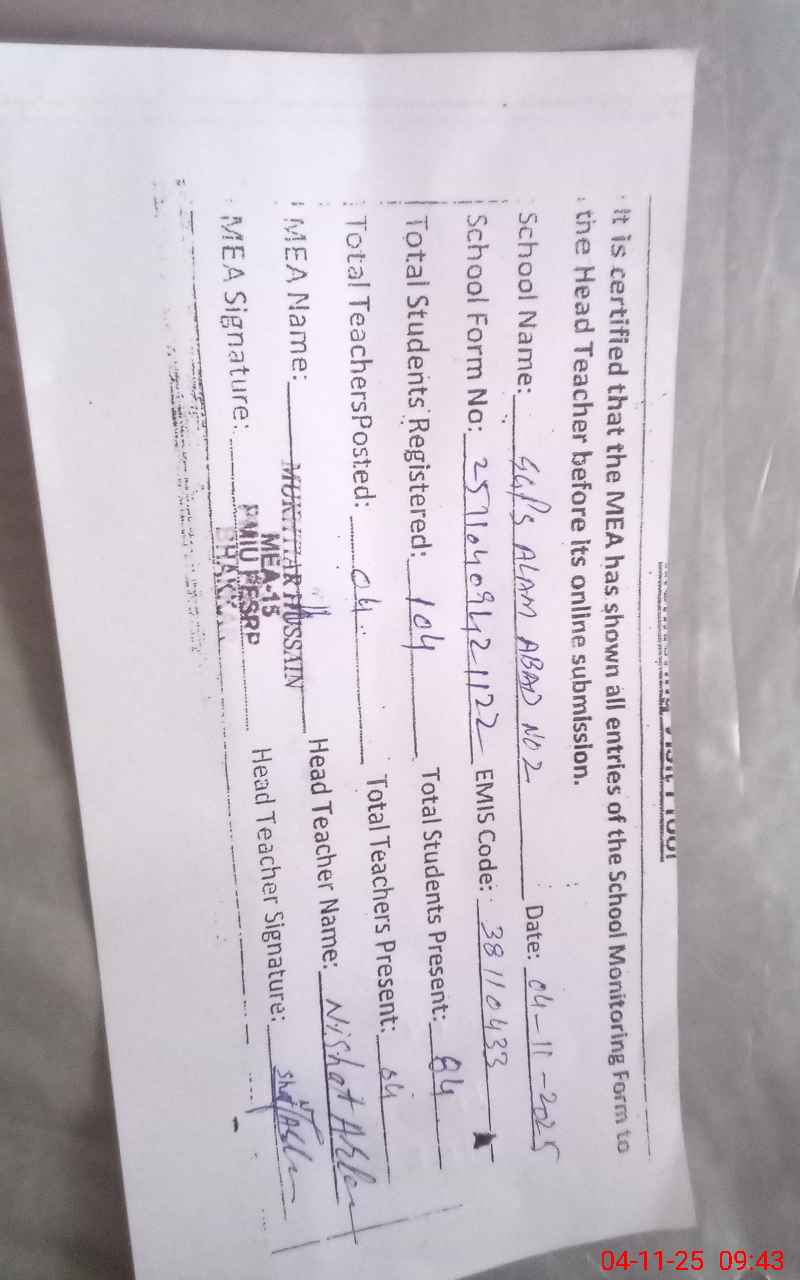 It is certified that the MEA has shown all entries of the School Monitoring Form to
the Head Teacher before its online submission.
School Name: GGPS ALAM ABAD NO 2 Date: 04-11-2025
School Form No: EMIS Code: 38110433
Total Students Registered: 104 Total Students Present: 84
Total TeachersPosted: 04 Total Teachers Present: 04
MEA Name: MUKHTAR HUSSAIN Head Teacher Name: Nishat
MEA-15
MEA Signature: PMIU PESRP Head Teacher Signature:
04-11-25 09:43